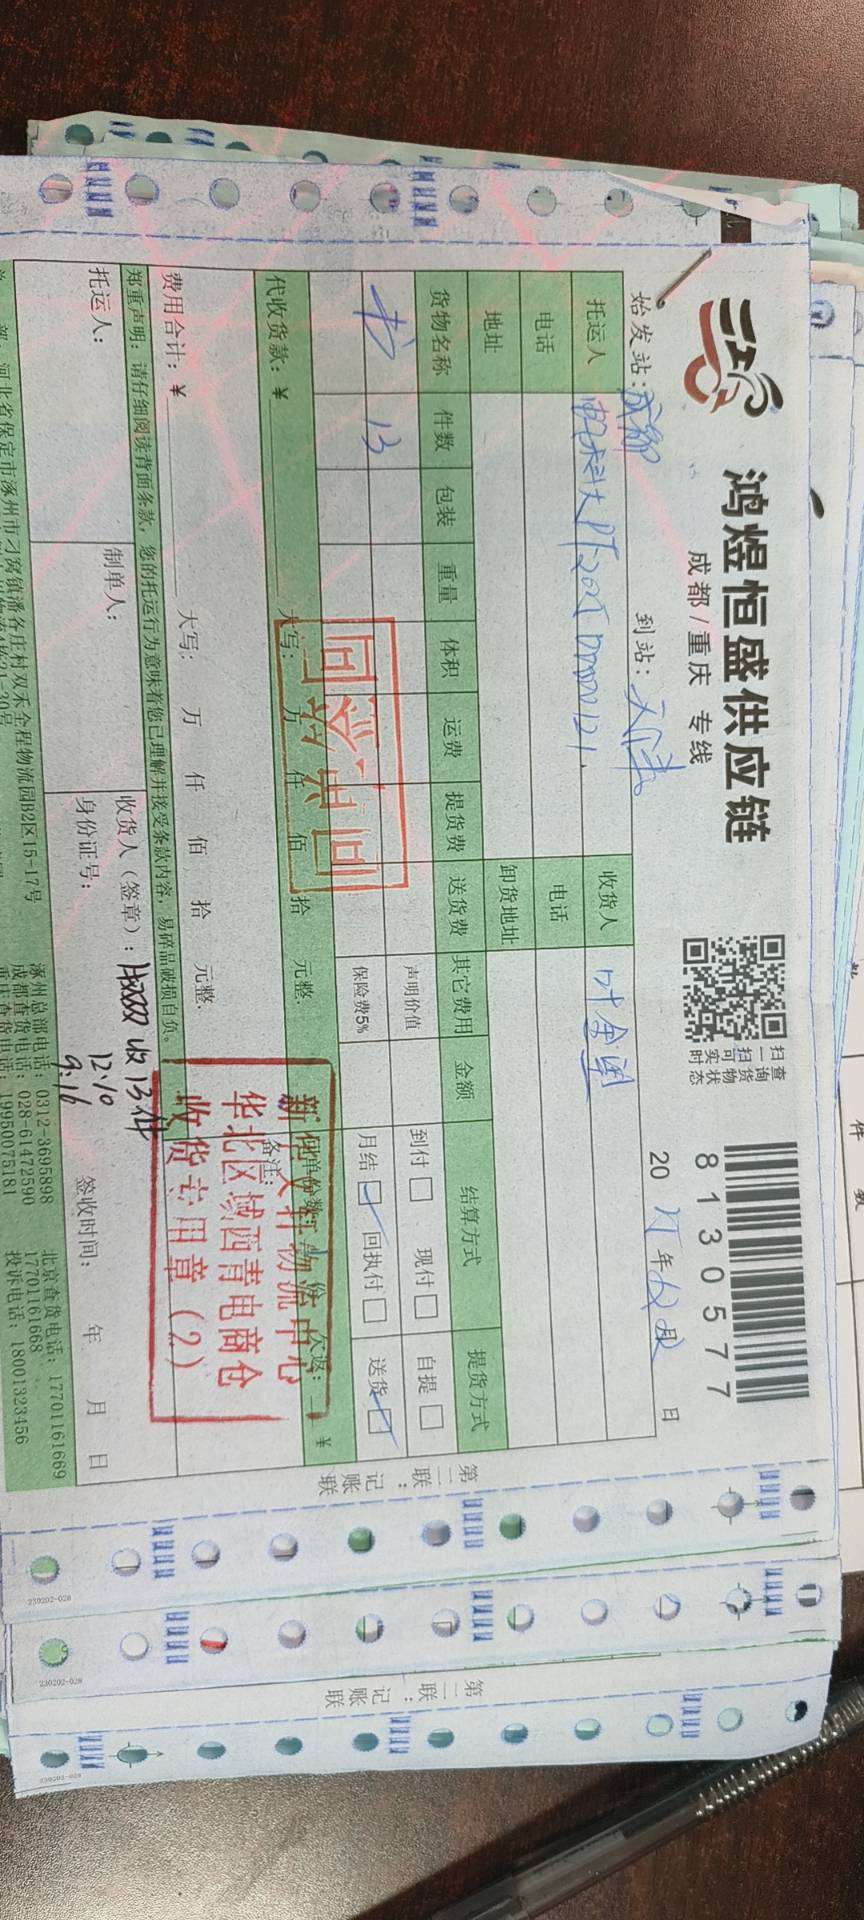 鸿煜恒盛供应链
成都/重庆 专线
扫一扫可实时
查询货物状态
81305577
始发站：成都
到站：天津
20 年 月 日
托运人
收货人 叶金军
电话
电话
地址
卸货地址
货物名称 件数 包装 重量 体积 运费 提货费 送货费 其它费用 金额 结算方式 提货方式
书 13
声明价值
到付 现付 自提
保险费5%
月结 回执付 送货
代收货款：¥ 大写： 万 仟 佰 拾 元整.
备注：
费用合计：¥ 大写： 万 仟 佰 拾 元整.
郑重声明：请仔细阅读背面条款，您的托运行为意味着您已理解并接受条款内容，易碎品破损自负。
托运人：
制单人：
收货人（签章）： 收13件
身份证号：
12.10
9.16
签收时间： 年 月 日
河北省保定市涿州市刁窝镇潘各庄村双禾全程物流园B2区15-17号
涿州总部电话：0312-3695898
成都查货电话：028-61472590
重庆查货电话：19950075181
北京查货电话：17701161669
17701161668
投诉电话：18001323456
新华文轩物流中心
华北区域西青电商仓
收货专用章（2）
第二联：记账联
230202-028
230202-028
第二联：记账联
230202-028
件数